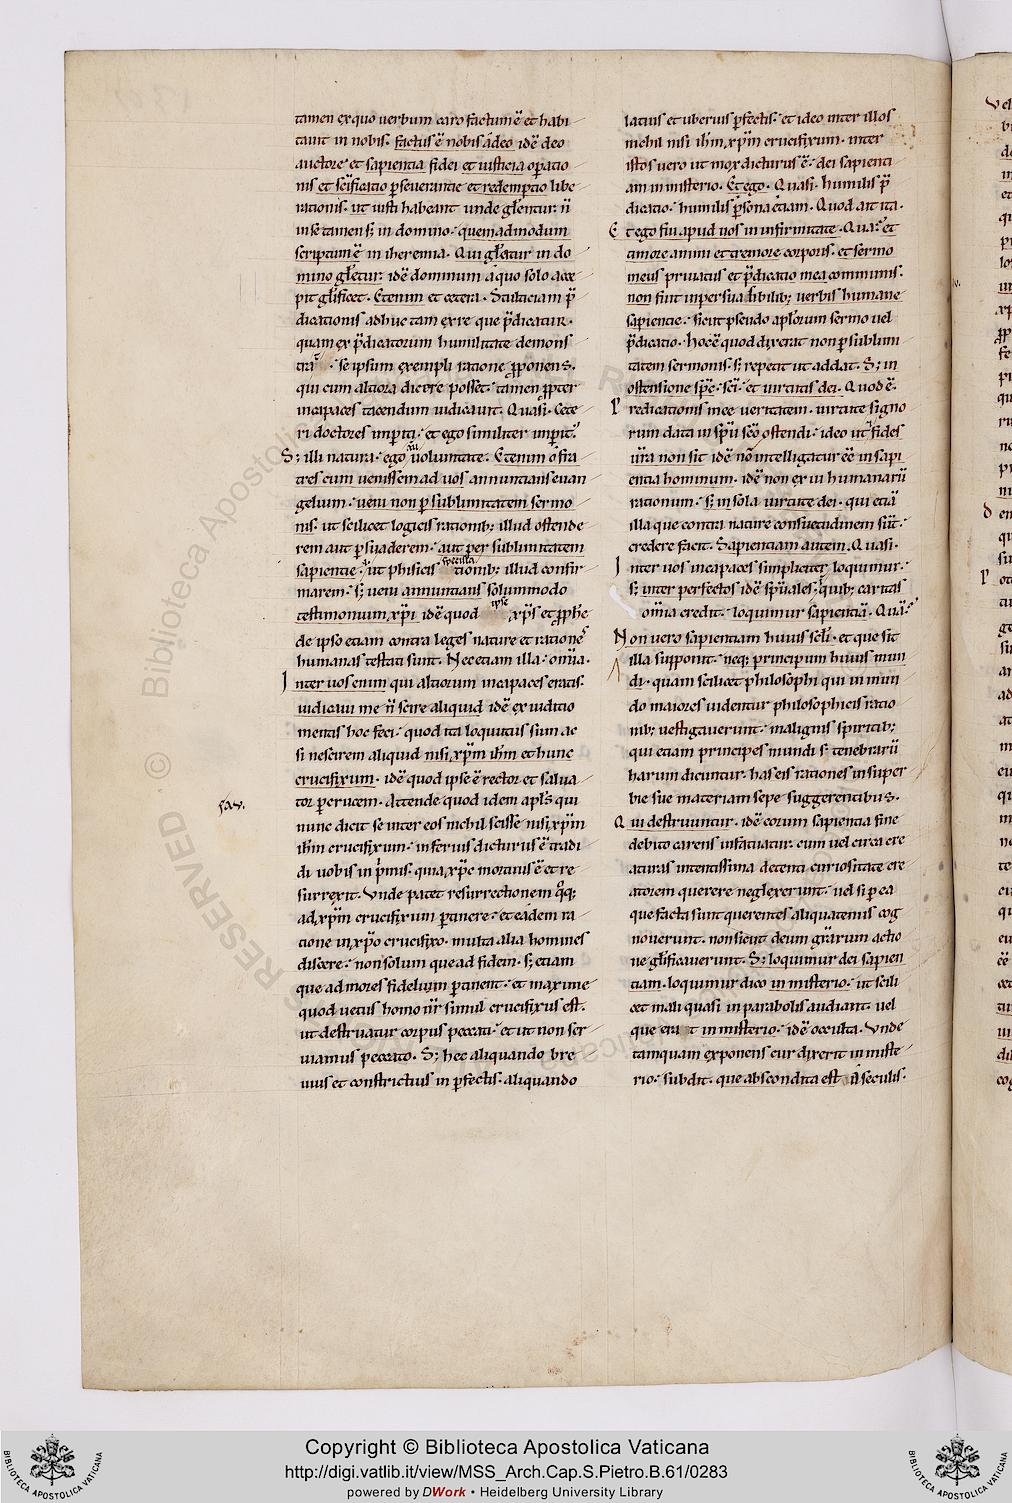 tamen ex quo uerbum caro factum ē et habi
tauit in nobis. factus ē nobis a deo idē deo
auctore et sapientia fidei et iusticia operatio
nis et sc̄ificatio perseuerantie et redemptio libe
rationis. ut iusti habeant unde gl̄entur. n̄
in se tamen s; in domino. quemadmodum
scriptum ē in iheremia. Qui gl̄etur in do
mino gl̄etur. idē dominum a quo solo acce
pit gl̄ificet. Etenim et cetera. Stulticiam p̄
dicationis adhuc tam ex re que p̄dicatur.
quam ex p̄dicatorum humilitate demons
trat. se ipsum exempli ratione proponens.
qui cum altiora dicere posset. tamen propter
incapaces tacendum iudicauit. Quasi. Cete
ri doctores imperiti. et ego similiter imperit'.
S; illi natura. ego ū uoluntate. Et enim o fra
tres cum uenissem ad uos annuntians euan
gelium. ueni non p̱ sublimitatem sermo
nis. ut scilicet logicis rationib; illud ostende
rem aut persuaderem. aut per sublimitatem
sapientie. ut phisicis specula tionib; illud confir
marem. s; ueni annuntians solummodo
testimonium xp̄i idē quod ipse xp̄s et prophe
de ipso etiam contra leges nature et rationes
humanas testati sunt. Nec etiam illa omīa.
Inter uos enim qui altiorum incapaces eratis.
iudicaui me n̄ scire aliquid idē ex iuditio
mentis hoc feci. quod ita loquutus sum ac
si nescirem aliquid nisi xp̄m ih̄m et hunc
crucifixum. idē quod ipse ē rector et salua
tor per crucem. Attende quod idem apl̄s qui
nunc dicit se inter eos nichil scisse nisi xp̄m
ih̄m crucifixum. inferius dicturus ē tradi
di uobis in primis. quia xp̄c mortuus ē et re
surrexit. Vnde patet resurrectionem q̊q;
ad xp̄m crucifixum pertinere. et eadem ra
tione in xp̄o crucifixo. multa alia homines
discere. non solum que ad fidem. s; etiam
que ad mores fidelium pertinent. et maxime
quod uetus homo nr̄ simul crucifixus est.
ut destruatur corpus peccati. et ut non ser
uiamus peccato. S; hec aliquando bre
uius et constrictius in perfectis. aliquando
latius et uberius perfectis. et ideo inter illos
nichil nisi ih̄m xp̄m crucifixum. inter
istos uero ut mox dicturus ē. dei sapienti
am in misterio. Et ego. Quasi. humilis p̄
dicatio. humilis persona etiam. Quod ait ita.
Et ego fui apud uos in infirmitate. Quasi. et
timore animi et tremore corporis. et sermo
meus priuatus et p̄dicatio mea communis.
non fuit in persuasibilib; uerbis humane
sapientie. sicut pseudo apl̄orum sermo uel
p̄dicatio. Hoc ē quod dixerat non per sublimi
tatem sermonis. s; repetit ut addat. S; in
ostensione sp̄c. sc̄i. et uirtutis dei. Quod ē.
Predicationis mee ueritatem. uirtute signo
rum data in sp̄u sc̄o ostendi. ideo ut fides
ur̄a non sit idē nō intelligatur eē in sapi
entia hominum. idē non ex ui humanarū
rationum. s; in sola uirtute dei. qui etiā
illa que contra nature consuetudinem sūt.
credere facit. Sapientiam autem. Quasi.
Inter uos incapaces simpliciter loquimur.
s; inter perfectos idē sp̄uales. quib; caritas
omīa credit. loquimur sapientiā. Quā.
Non uero sapientiam huius scl̄i. et que sit
illa supponit. neq; principum huius mun
di. quam scilicet philosophi qui in mun
do maiores uidentur philosophicis ratio
nib; uestigauerunt. malignis spiritib;
qui etiam principes mundi s; tenebrarū
harum dicuntur. has eis rationes in super
bie sue materiam sepe suggerentibus.
Qui destruuntur. idē eorum sapientia fine
debito carens infatuatur. cum uel circa cre
aturas intentissima detenti curiositate cre
atorem querere neglexerunt. uel si per ea
que facta sunt querentes aliquatenus cog
nouerunt. non sicut deum gr̄arum actio
ne gl̄ificauerunt. S; loquimur dei sapien
tiam. loquimur dico in misterio. ut scili
cet mali quasi in parabolis audiant. uel
que erat in misterio. idē occulta. Vnde
tamquam exponens cur dixerit in miste
rio. subdit. que abscondita est a seculis.
Copyright © Biblioteca Apostolica Vaticana
http://digi.vatlib.it/view/MSS_Arch.Cap.S.Pietro.B.61/0283
powered by DWork • Heidelberg University Library
BIBLIOTECA APOSTOLICA VATICANA
BIBLIOTECA APOSTOLICA VATICANA